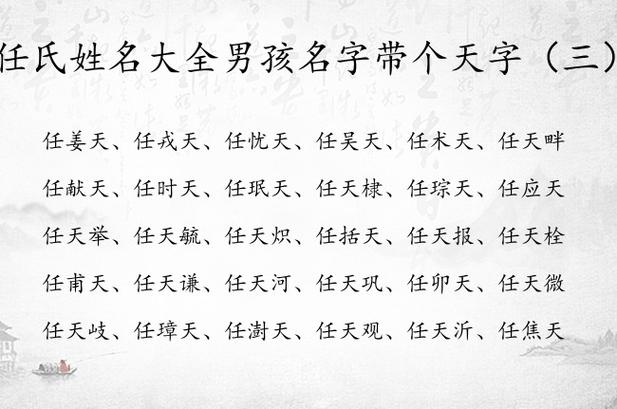 任氏姓名大全男孩名字带个天字（三）
任姜天、任戎天、任忧天、任吴天、任术天、任天畔
任献天、任时天、任珉天、任天棣、任琮天、任应天
任天举、任天毓、任天炽、任括天、任天报、任天栓
任甫天、任天谦、任天河、任天巩、任卯天、任天微
任天岐、任璋天、任澍天、任天观、任天沂、任焦天